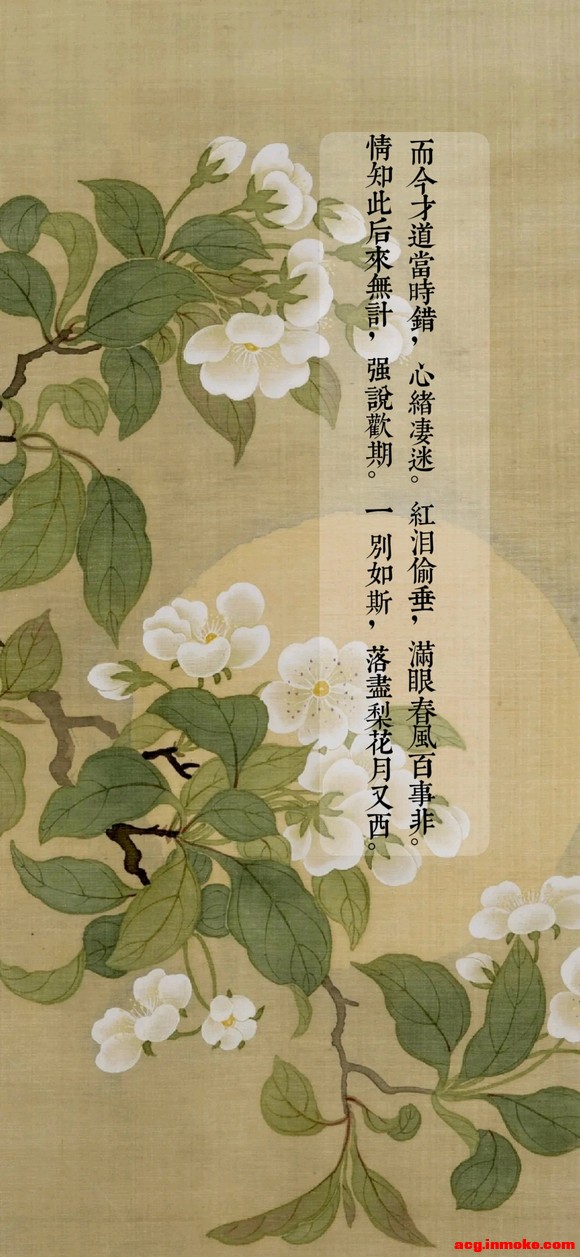 而今才道當時錯，心緒凄迷。紅泪偷垂，滿眼春風百事非。
情知此后來無計，强說歡期。一別如斯，落盡梨花月又西。
acg.inmoke.com